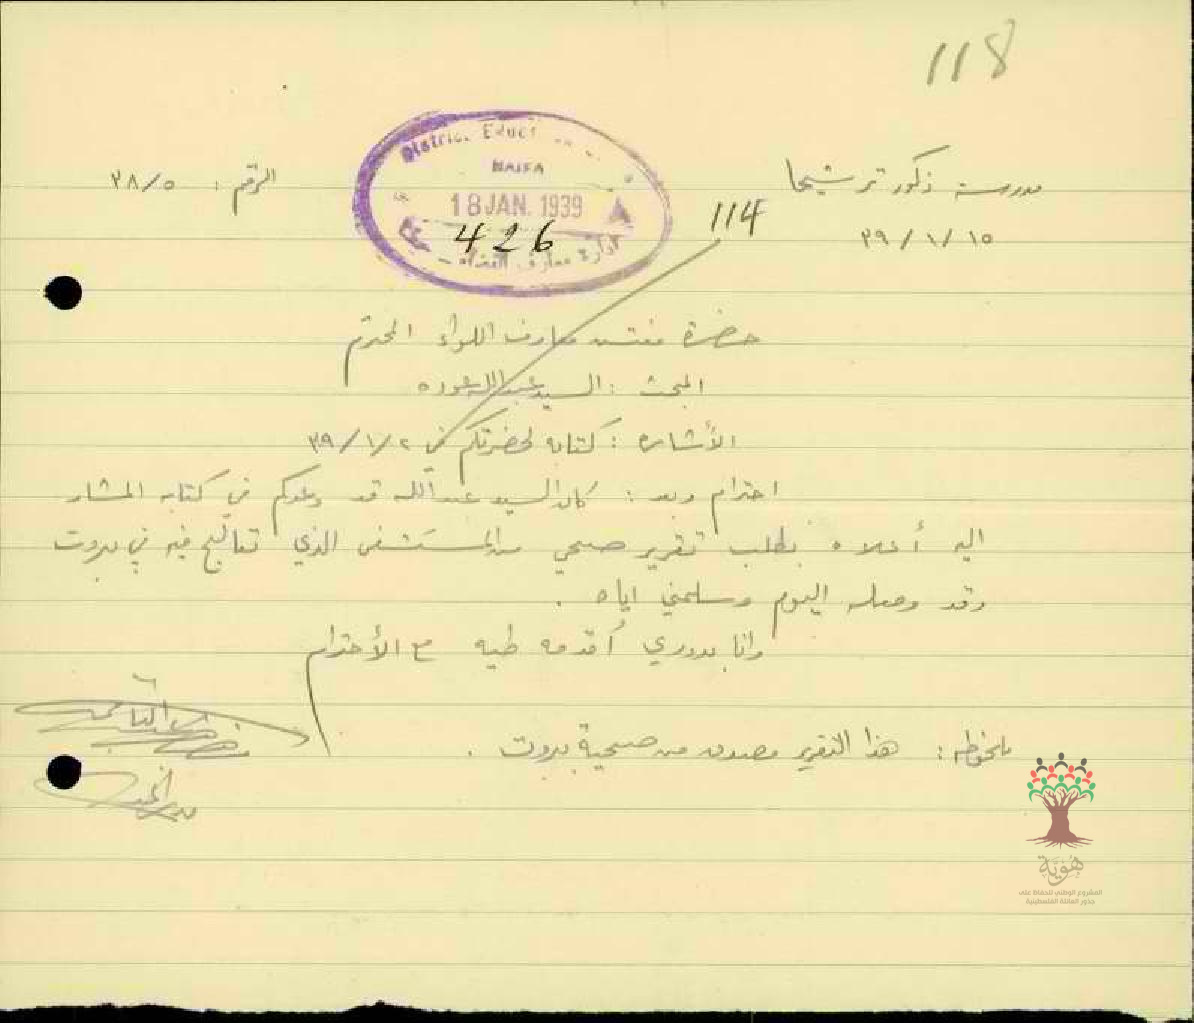 118
مدرسة ذكور ترشيحا
الرقم : ٣٨/٥
١٥ / ١ / ٣٩
114
District Educ
HAIFA
18 JAN. 1939
426
ادارة معارف القضاء
حضرة مفتش معارف اللواء المحترم
المبحث : السيد عبدالله عوده
الأشاره : كتابه لحضرتكم في ٢ / ١ / ٣٩
احترام وبعد : كان السيد عبدالله قد وعدكم في كتابه المشار
اليه أعلاه بطلب تقرير صحي من المستشفى الذي تعالج فيه في بيروت
وقد وصله اليوم وسلمني اياه .
وانا بدوري أقدمه طيه مع الأحترام
ملحوظه : هذا التقرير مصدق من صحية بيروت .
مدير المدرسة
هُوِيَّة
المشروع الوطني للحفاظ على
جذور العائلة الفلسطينية